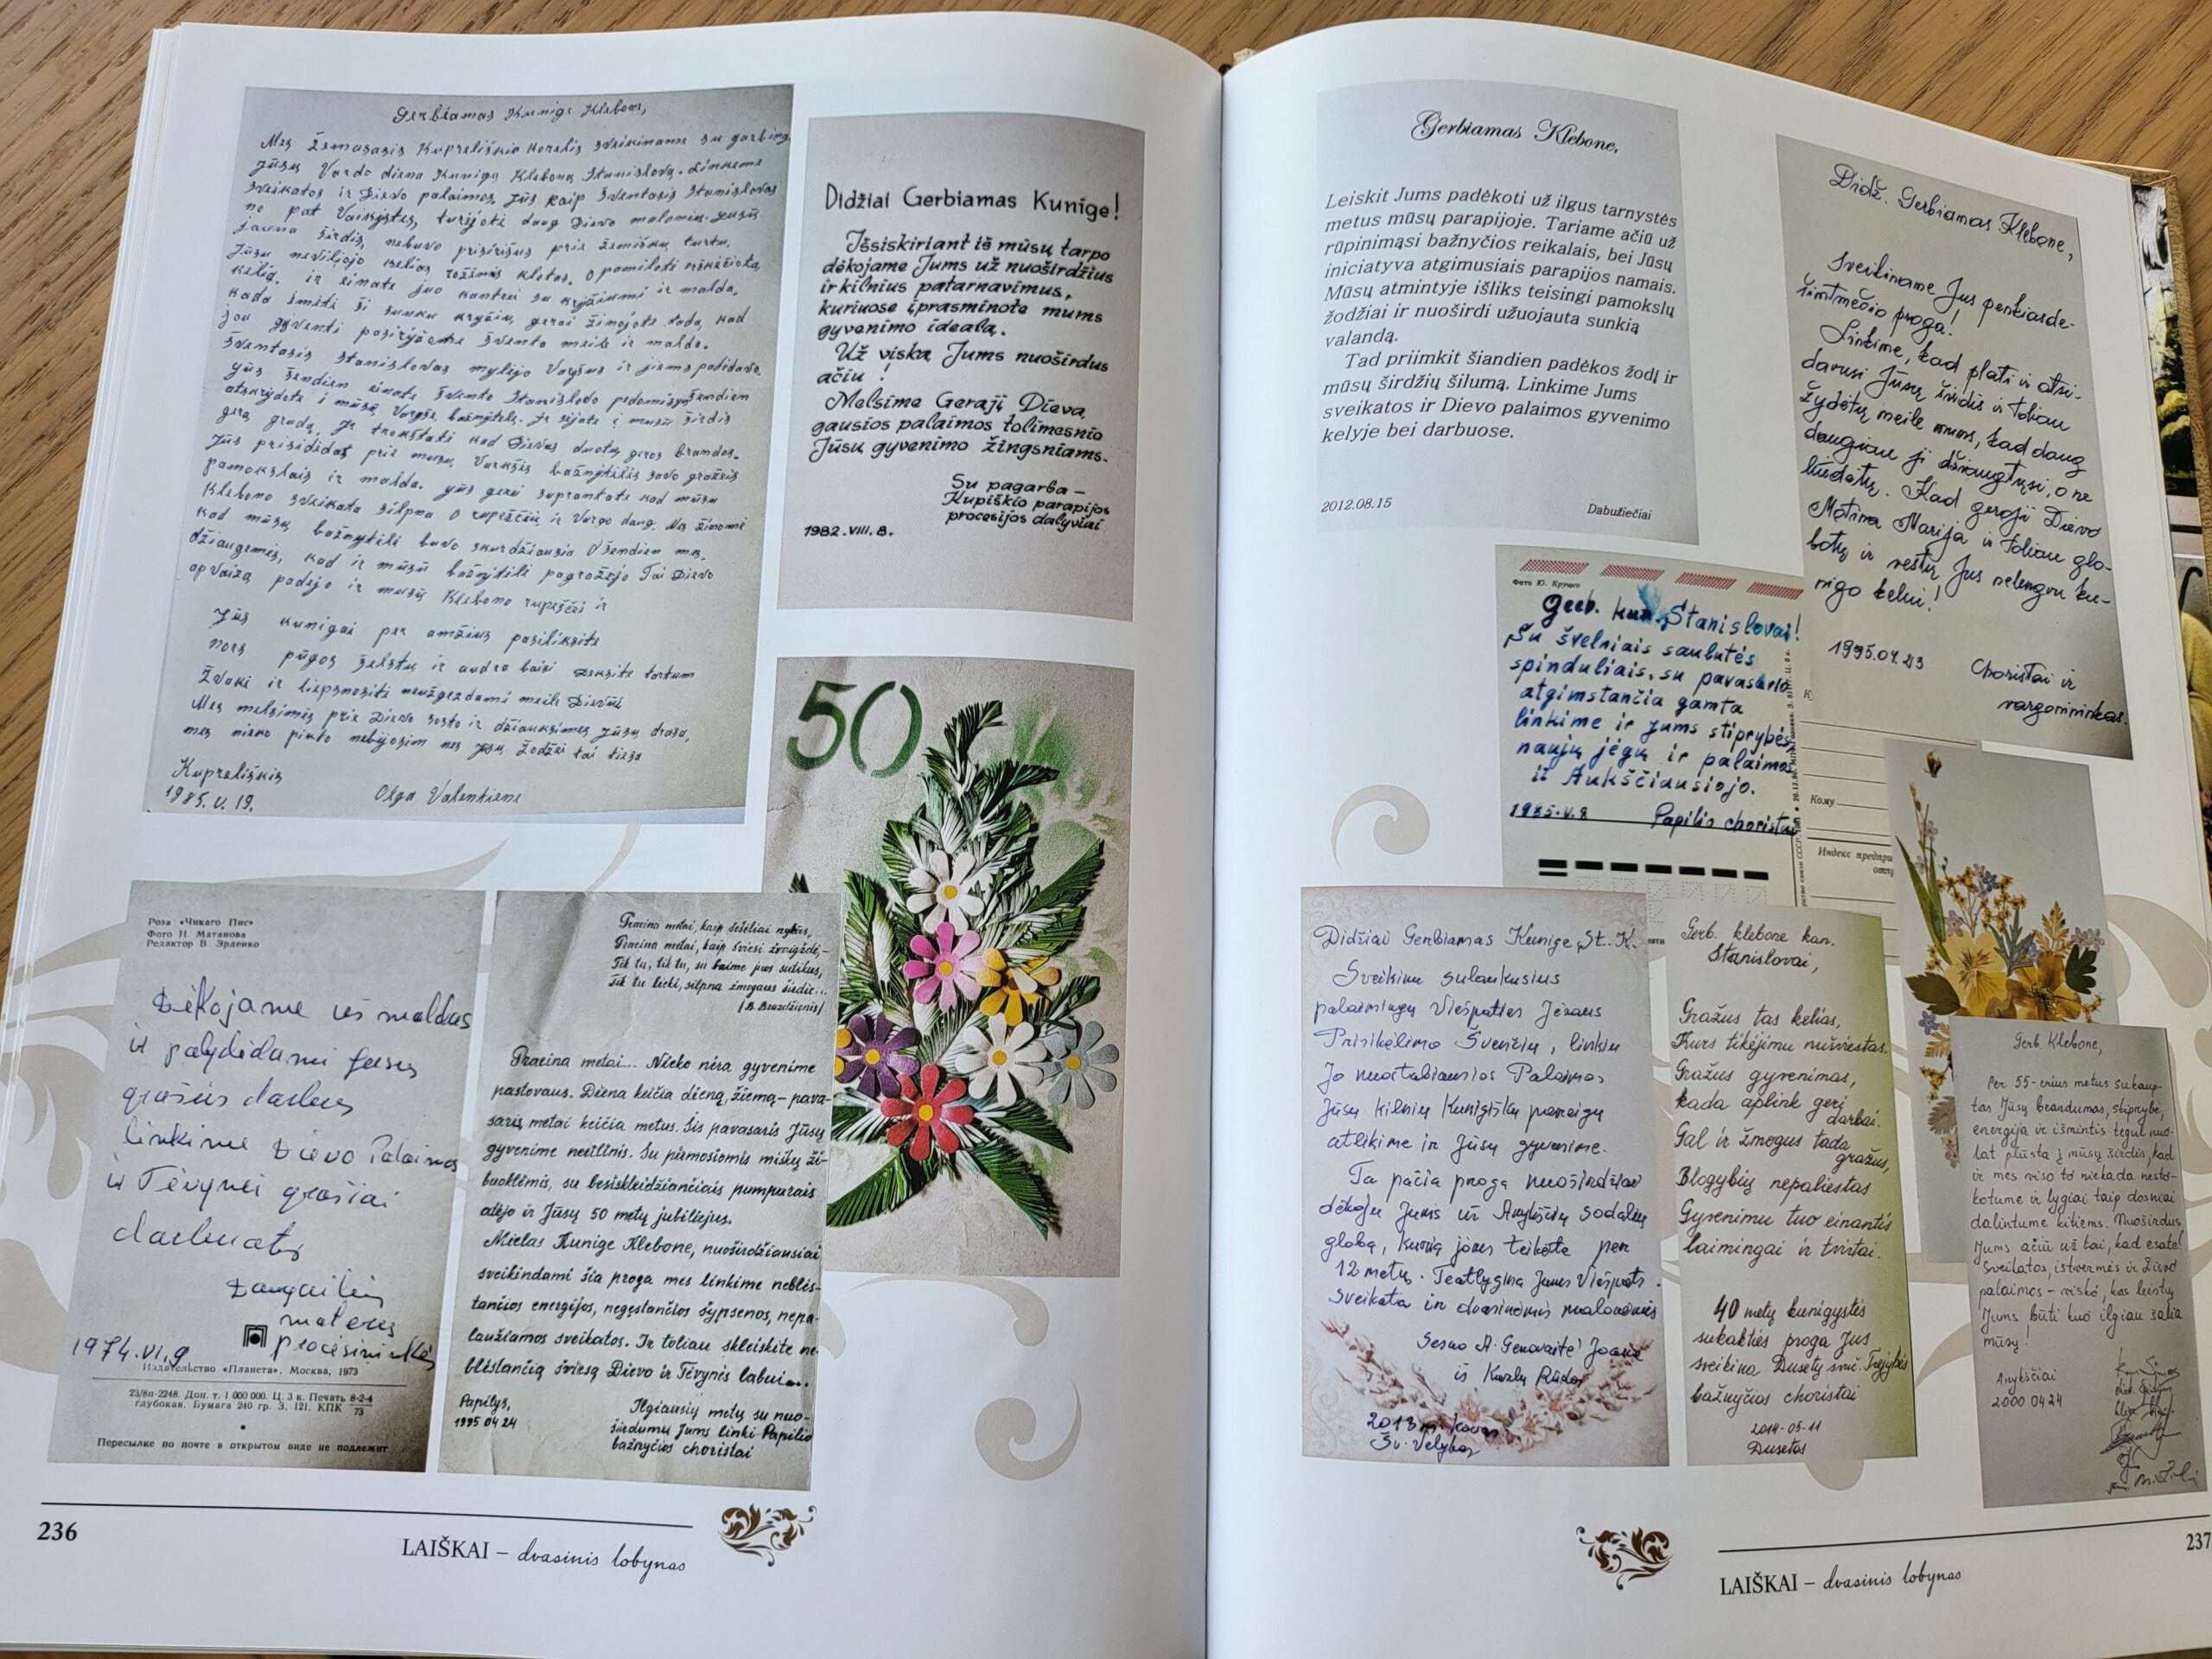 Gerbiamas Kunige Klebone,
Mes Žemasasis Kupreliškio korelis sveikiname su garbing
Jūsų Vardo diena Kunigą Kleboną Stanislovą. Linkeme
sveikatos ir Dievo palaimos, Jūs kaip šventasis Stanislovas
no pat Vaikystes, turėjote daug Dievo malonių. Jusūs
jauna širdis, nebuvo pririšus prie žemiškų turtų,
Jūsų neviliojo kelias rožėmis klotas. O pamilote erškėčiotą
kelią, ir einate juo kantrei su kryžiumi ir malda,
kada ėmėte šį sunkų kryžių, gerai žinojote tada, kad
jou gyventi pasiryžėme šventa meile ir malda.
Šventasis Stanislovas mylėjo Vargšus ir jiems padėdavo,
yūs šendien einate švento Stanislovo pėdomis šendien
atskrydote į mūsų Vargšę bažnytėlę. Ir sėjate į musų širdis
gerą grudą. Ir trokštati kad Dievas duotų geros brandos.
Jūs prisidėdat prie musų Varkšės bažnytėlės savo gražeis
pamokslais ir malda. yūs gerei suprantate kad mūsu
Klebono sveikata silpna O rupeščių ir Vargo daug. Mes žinomė
kad mūsų bažnytėlė buvo skurdžiausia O šendien mes,
džiaugemės, kad ir mūsū bažnytėlė pagražėjo Tai Dievo
apvaizda padėjo ir musų Klebono rupeščei ir
Jūs kunigai per amžius pasiliksite
nors pūgos šelstų ir audra baisi Deksite tartum
Žvakė ir liepsnositi neužgesdami meile Dievui
Mes melsimės prie Dievo sosto ir džiauksimės Jūsų drasa,
mes nieko pikto nebijosim nes Jūsų žodžei tai tiesa
Kupreliškis
1985.V.19.
Olga Valentiene
Didžiai Gerbiamas Kunige!
Išsiskiriant iš mūsų tarpo
dėkojame Jums už nuoširdžius
ir kilnius patarnavimus,
kuriuose įprasminote mums
gyvenimo idealą.
Už viską Jums nuoširdus
ačiu !
Melsime Gerąjį Dievą
gausios palaimos tolimesnio
Jūsų gyvenimo žingsniams.
Su pagarba –
Kupiškio parapijos
procesijos dalyviai
1982.VIII.8.
50
Роза «Чикаго Пис»
Фото Н. Матанова
Редактор В. Эрденко
Dėkojame už maldas
ir palydėdami Jūsų
gražius darbus
linkime Dievo Palaimos
ir Tėvynei gražiai
darbuotis
Daugailių
moterys
procesininkės
1974.VI.9
Издательство «Планета». Москва, 1973
23/8п-2248. Доп. т. 1 000 000. Ц. 3 к. Печать 8-2-4
глубокая. Бумага 240 гр. З. 121. КПК 73
Пересылке по почте в открытом виде не подлежит
Praeina metai, kaip šešėliai nykūs,
Praeina metai, kaip šviesi žvaigždė, –
Tik tu, tik tu, su baime juos sutikus,
Tik tu lieki, silpna žmogaus širdie...
/B. Brazdžionis/
Praeina metai... Nieko nėra gyvenime
pastovaus. Diena keičia dieną, žiemą – pava-
saris, metai keičia metus. Šis pavasaris Jūsų
gyvenime neeilinis. Su pirmosiomis miškų ži-
buoklėmis, su besiskleidžiančiais pumpurais
atėjo ir Jūsų 50 metų jubiliejus.
Mielas Kunige Klebone, nuoširdžiausiai
sveikindami šia proga mes linkime neblės-
tančios energijos, negęstančios šypsenos, nepa-
laužiamos sveikatos. Ir toliau skleiskite ne-
blėstančią šviesą Dievo ir Tėvynės labui...
Papilys,
1995 04 24
Ilgiausių metų su nuo-
širdumu Jums linki Papilio
bažnyčios choristai
236
LAIŠKAI – dvasinis lobynas
Gerbiamas Klebone,
Leiskit Jums padėkoti už ilgus tarnystės
metus mūsų parapijoje. Tariame ačiū už
rūpinimąsi bažnyčios reikalais, bei Jūsų
iniciatyva atgimusiais parapijos namais.
Mūsų atmintyje išliks teisingi pamokslų
žodžiai ir nuoširdi užuojauta sunkią
valandą.
Tad priimkit šiandien padėkos žodį ir
mūsų širdžių šilumą. Linkime Jums
sveikatos ir Dievo palaimos gyvenimo
kelyje bei darbuose.
2012.08.15
Dabužiečiai
Didž. Gerbiamas Klebone,
Sveikiname Jus penkiasde-
šimtmečio proga!
Linkime, kad plati ir atsi-
davusi Jūsų širdis ir toliau
žydėtų meile mums, kad daug
daugiau ji džiaugtųsi, o ne
liūdėtų. Kad geroji Dievo
Motina Marija ir toliau glo-
botų ir vestų Jus nelengvu ku-
nigo keliu!
1995.04.23
Choristai ir
vargonininkas.
Фото Ю. Круцко
Gerb. kun. Stanislovai!
Su švelniais saulutės
spinduliais, su pavasario
atgimstančia gamta
linkime ir Jums stiprybės,
naujų jėgų ir palaimos
iš Aukščiausiojo.
1985.V.8
Papilio choristai
Кому
Индекс предпри
отпр
Didžiai Gerbiamas Kunige St. K.
Sveikinu sulaukusius
palaimingų Viešpaties Jėzaus
Prisikėlimo Švenčių, linkiu
Jo nuostabiausios Palaimos
Jūsų kilnių Kunigiškų pareigų
atlikime ir Jūsų gyvenime.
Ta pačia proga nuoširdžiai
dėkoju Jums už Anykščių sodalių
globą, kurią joms teikėte per
12 metų. Teatlygina Jums Viešpats
sveikata ir dvasinėmis malonėmis
Sesuo A. Genovaitė Joana
iš Kazlų Rūdos
2013 m kovas
Šv. Velykos
Gerb. klebone kan.
Stanislovai,
Gražus tas kelias,
Kurs tikėjimu nušviestas.
Gražus gyvenimas,
kada aplink geri
darbai.
Gal ir žmogus tada
gražus,
Blogybių nepaliestas
Gyvenimu tuo einantis
laimingai ir tvirtai.
40 metų kunigystės
sukakties proga Jus
sveikina Dusetų švč. Trejybės
bažnyčios choristai
2014-05-11
Dusetos
Gerb. Klebone,
Per 55-erius metus sukaup-
tas Jūsų brandumas, stiprybė,
energija ir išmintis tegul nuo-
lat plūsta į mūsų širdis, kad
ir mes viso to niekada nesto-
kotume ir lygiai taip dosniai
dalintume kitiems. Nuoširdus
Jums ačiū už tai, kad esate!
Sveikatos, ištvermės ir Dievo
palaimos – visko, kas leistų
Jums būti kuo ilgiau šalia
mūsų!
Anykščiai
2000 04 24
237
LAIŠKAI – dvasinis lobynas